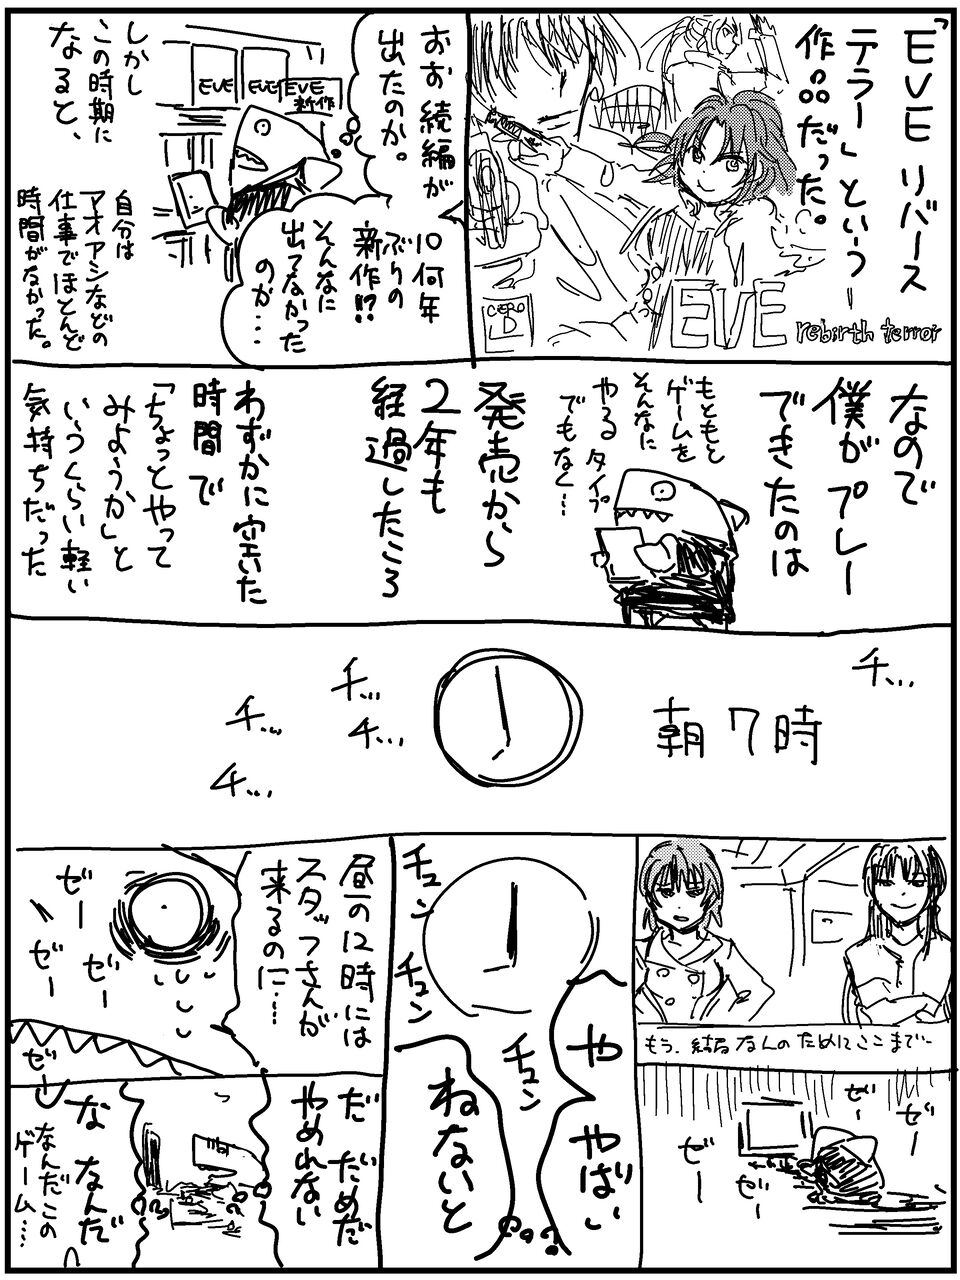 「EVE リバース
テラー」という
作品だった。
CERO
D
EVE
rebirth terror
おお 続編が
出たのか。
10何年
ぶりの
新作!?
そんなに
出てなかった
のか…
EVE
EVE
EVE
新作
しかし
この時期に
なると、
自分は
アオアシなどの
仕事でほとんど
時間がなかった。
なので
僕がプレー
できたのは
もともと
ゲームを
そんなに
やるタイプ
でもなく…
発売から
2年も
経過したころ
わずかに空いた
時間で
「ちょっとやって
みようか」と
いうくらい軽い
気持ちだった
チ…
朝7時
チ…
チ…
チ…
チ…
もう、結局なんのためにここまで–
ゼー
ゼー
ゼー
ゼー
チュン
チュン
チュン
やばい
やばい
ねないと
昼の12時には
スタッフさんが
来るのに…
ゼー
ゼー
ゼー
ゼー
だ だめだ
やめれない
な なんだ
なんだこの
ゲーム…